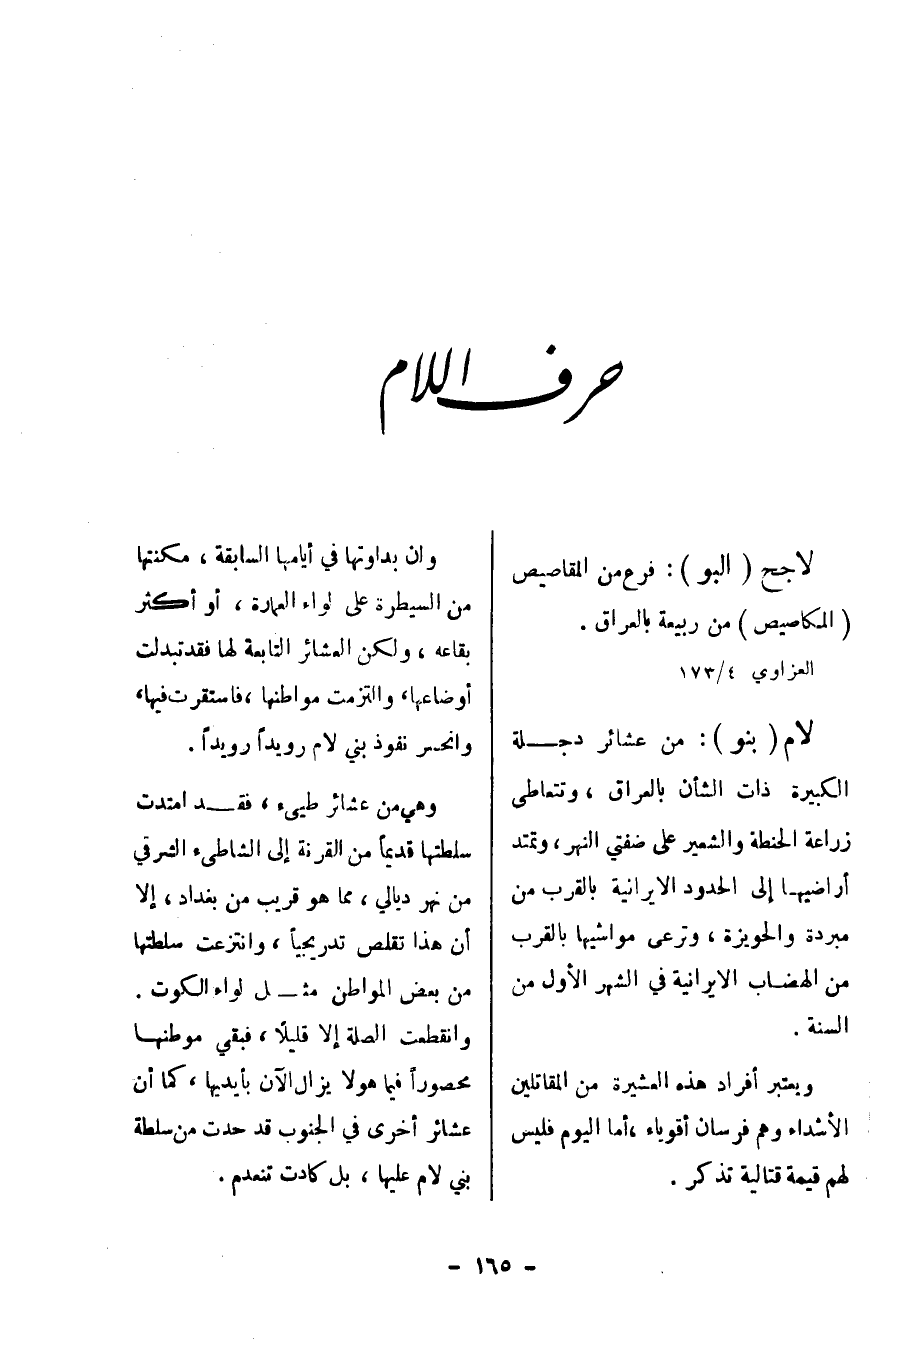 حرف اللام
لاجح ( البو ) : فرع من المقاصيص
( المكاصيص ) من ربيعة بالعراق .
العزاوي ٤/١٧٣
لام ( بنو ) : من عشائر دجـــلة
الكبيرة ذات الشأن بالعراق ، وتتعاطى
زراعة الحنطة والشعير على ضفتي النهر ، وتمتد
أراضيها إلى الحدود الايرانية بالقرب من
مبردة والحويزة ، وترعى مواشيها بالقرب
من الهضاب الايرانية في الشهر الأول من
السنة .
ويعتبر أفراد هذه العشيرة من المقاتلين
الأشداء وهم فرسان أقوياء ، أما اليوم فليس
لهم قيمة قتالية تذكر .
وان بداوتها في أيامها السابقة ، مكنتها
من السيطرة على لواء العمارة ، أو أكثر
بقاعه ، ولكن العشائر التابعة لها فقد تبدلت
أوضاعها ، والتزمت مواطنها ، فاستقرت فيها ،
وانحسر نفوذ بني لام رويداً رويداً .
وهي من عشائر طيىء ، فقـــد امتدت
سلطتها قديماً من القرنة إلى الشاطىء الشرقي
من نهر ديالي ، مما هو قريب من بغداد ، إلا
أن هذا تقلص تدريجياً ، وانتزعت سلطتها
من بعض المواطن مثـــل لواء الكوت .
وانقطعت الصلة إلا قليلاً ، فبقي موطنها
محصوراً فيما هو لا يزال الآن بأيديها ، كما أن
عشائر أخرى في الجنوب قد حدت من سلطة
بني لام عليها ، بل كادت تنعدم .
- ١٦٥ -